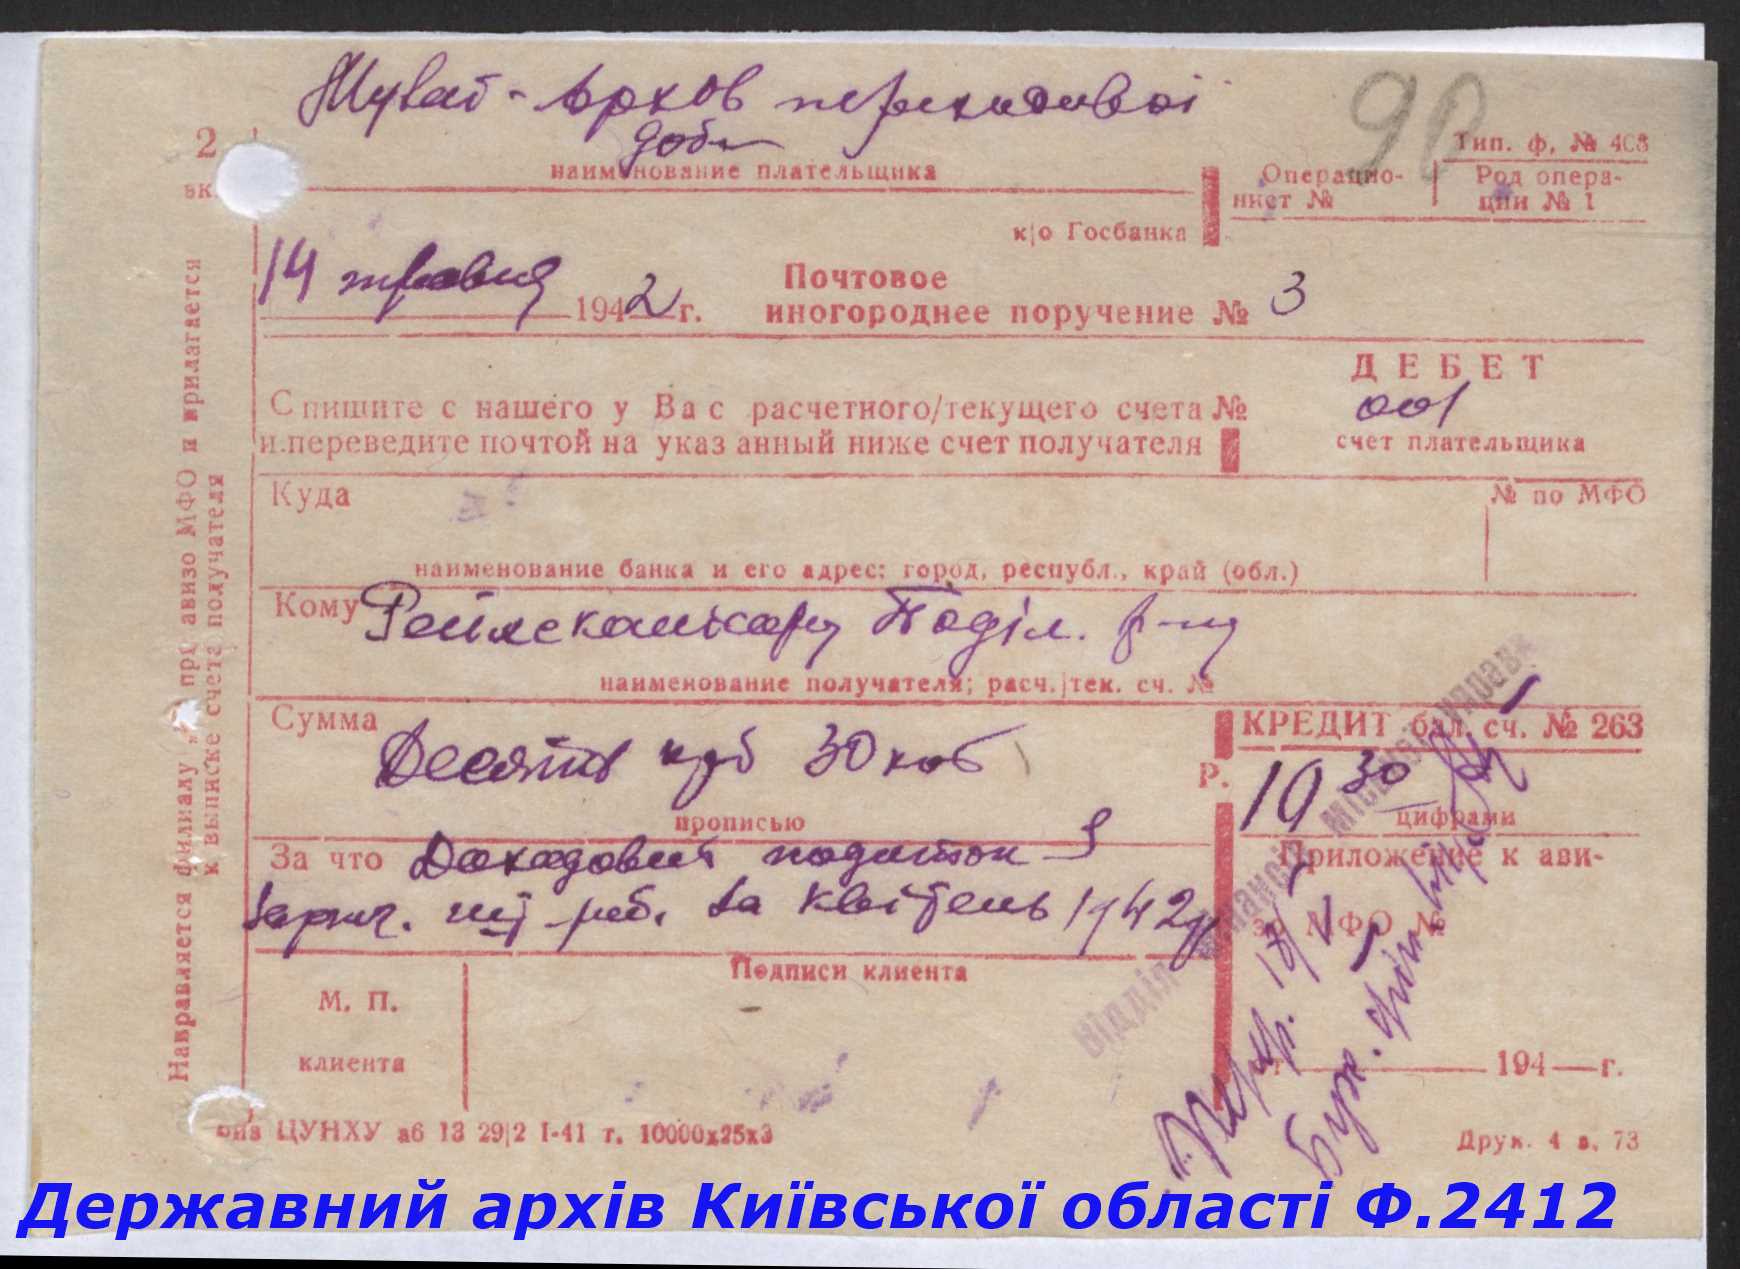 Музей-Архів переходової
доби
90
2
наименование плательщика
Тип. ф. № 403
Операцио-
нист №
Род опера-
ции № 1
к|о Госбанка
14 травня 1942 г.
Почтовое
иногороднее поручение № 3
ДЕБЕТ
Спишите с нашего у Вас расчетного/текущего счета №
001
и переведите почтой на указанный ниже счет получателя
счет плательщика
Куда
№ по МФО
наименование банка и его адрес: город, республ., край (обл.)
Кому Райхскомісару Поділ. р-ну
наименование получателя; расч.|тек. сч. №
Сумма Десять крб 30 коп
КРЕДИТ бал. сч. № 263
Р. 10 30
прописью
цифрами
За что Доходовий податок з
зарпл. за квітень 1942р
Приложение к ави-
зо МФО №
Подписи клиента
М. П.
клиента
от 194 г.
Відділ фінансів міської управи
Бух.
Направляется филиалу при авизо МФО и прилагается
к выписке счета получателя
ЦУНХУ а6 13 29|2 I-41 г. 10000х25х3
Друк. 4 з. 73
Державний архів Київської області Ф.2412